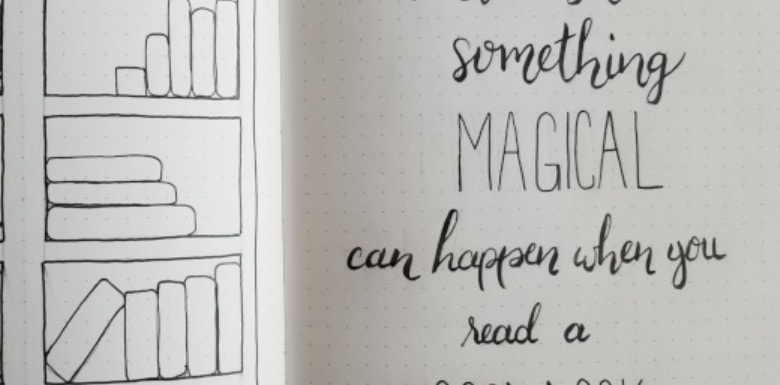 something
MAGICAL
can happen when you
read a